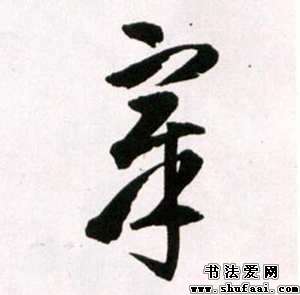 宰
书法爱网
www.shufaai.com